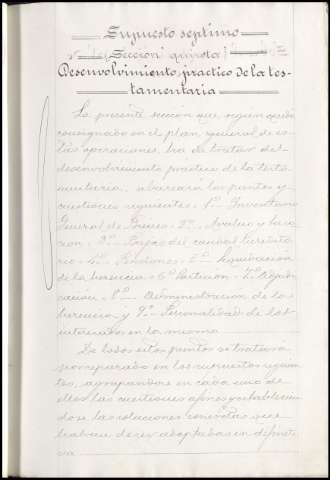 Supuesto septimo
Sección quinta
Desenvolvimiento practico de la tes-
tamentaria
La presente sección que, segun queda
consignado en el plan general de es-
tas operaciones, ha de tratar del
desenvolvimiento practico de la testa-
mentaria, abarcará los puntos y
cuestiones siguientes: 1º Inventario
General de bienes = 2º Avaluo y tasa-
cion = 3º Bajas del caudal heredita-
rio = 4º = 5º Liquidación
de la herencia = 6º Partición = 7º Adjudi-
cacion = 8º Administracion de la
herencia y 9º Personalidad de los
interesados en la misma
De todos estos puntos se tratará
por separado en los supuestos siguien-
tes, agrupandose en cada uno de
ellos las cuestiones y estableciendo-
dose las soluciones concretas que
habran de ser adoptadas en difiniti-
va